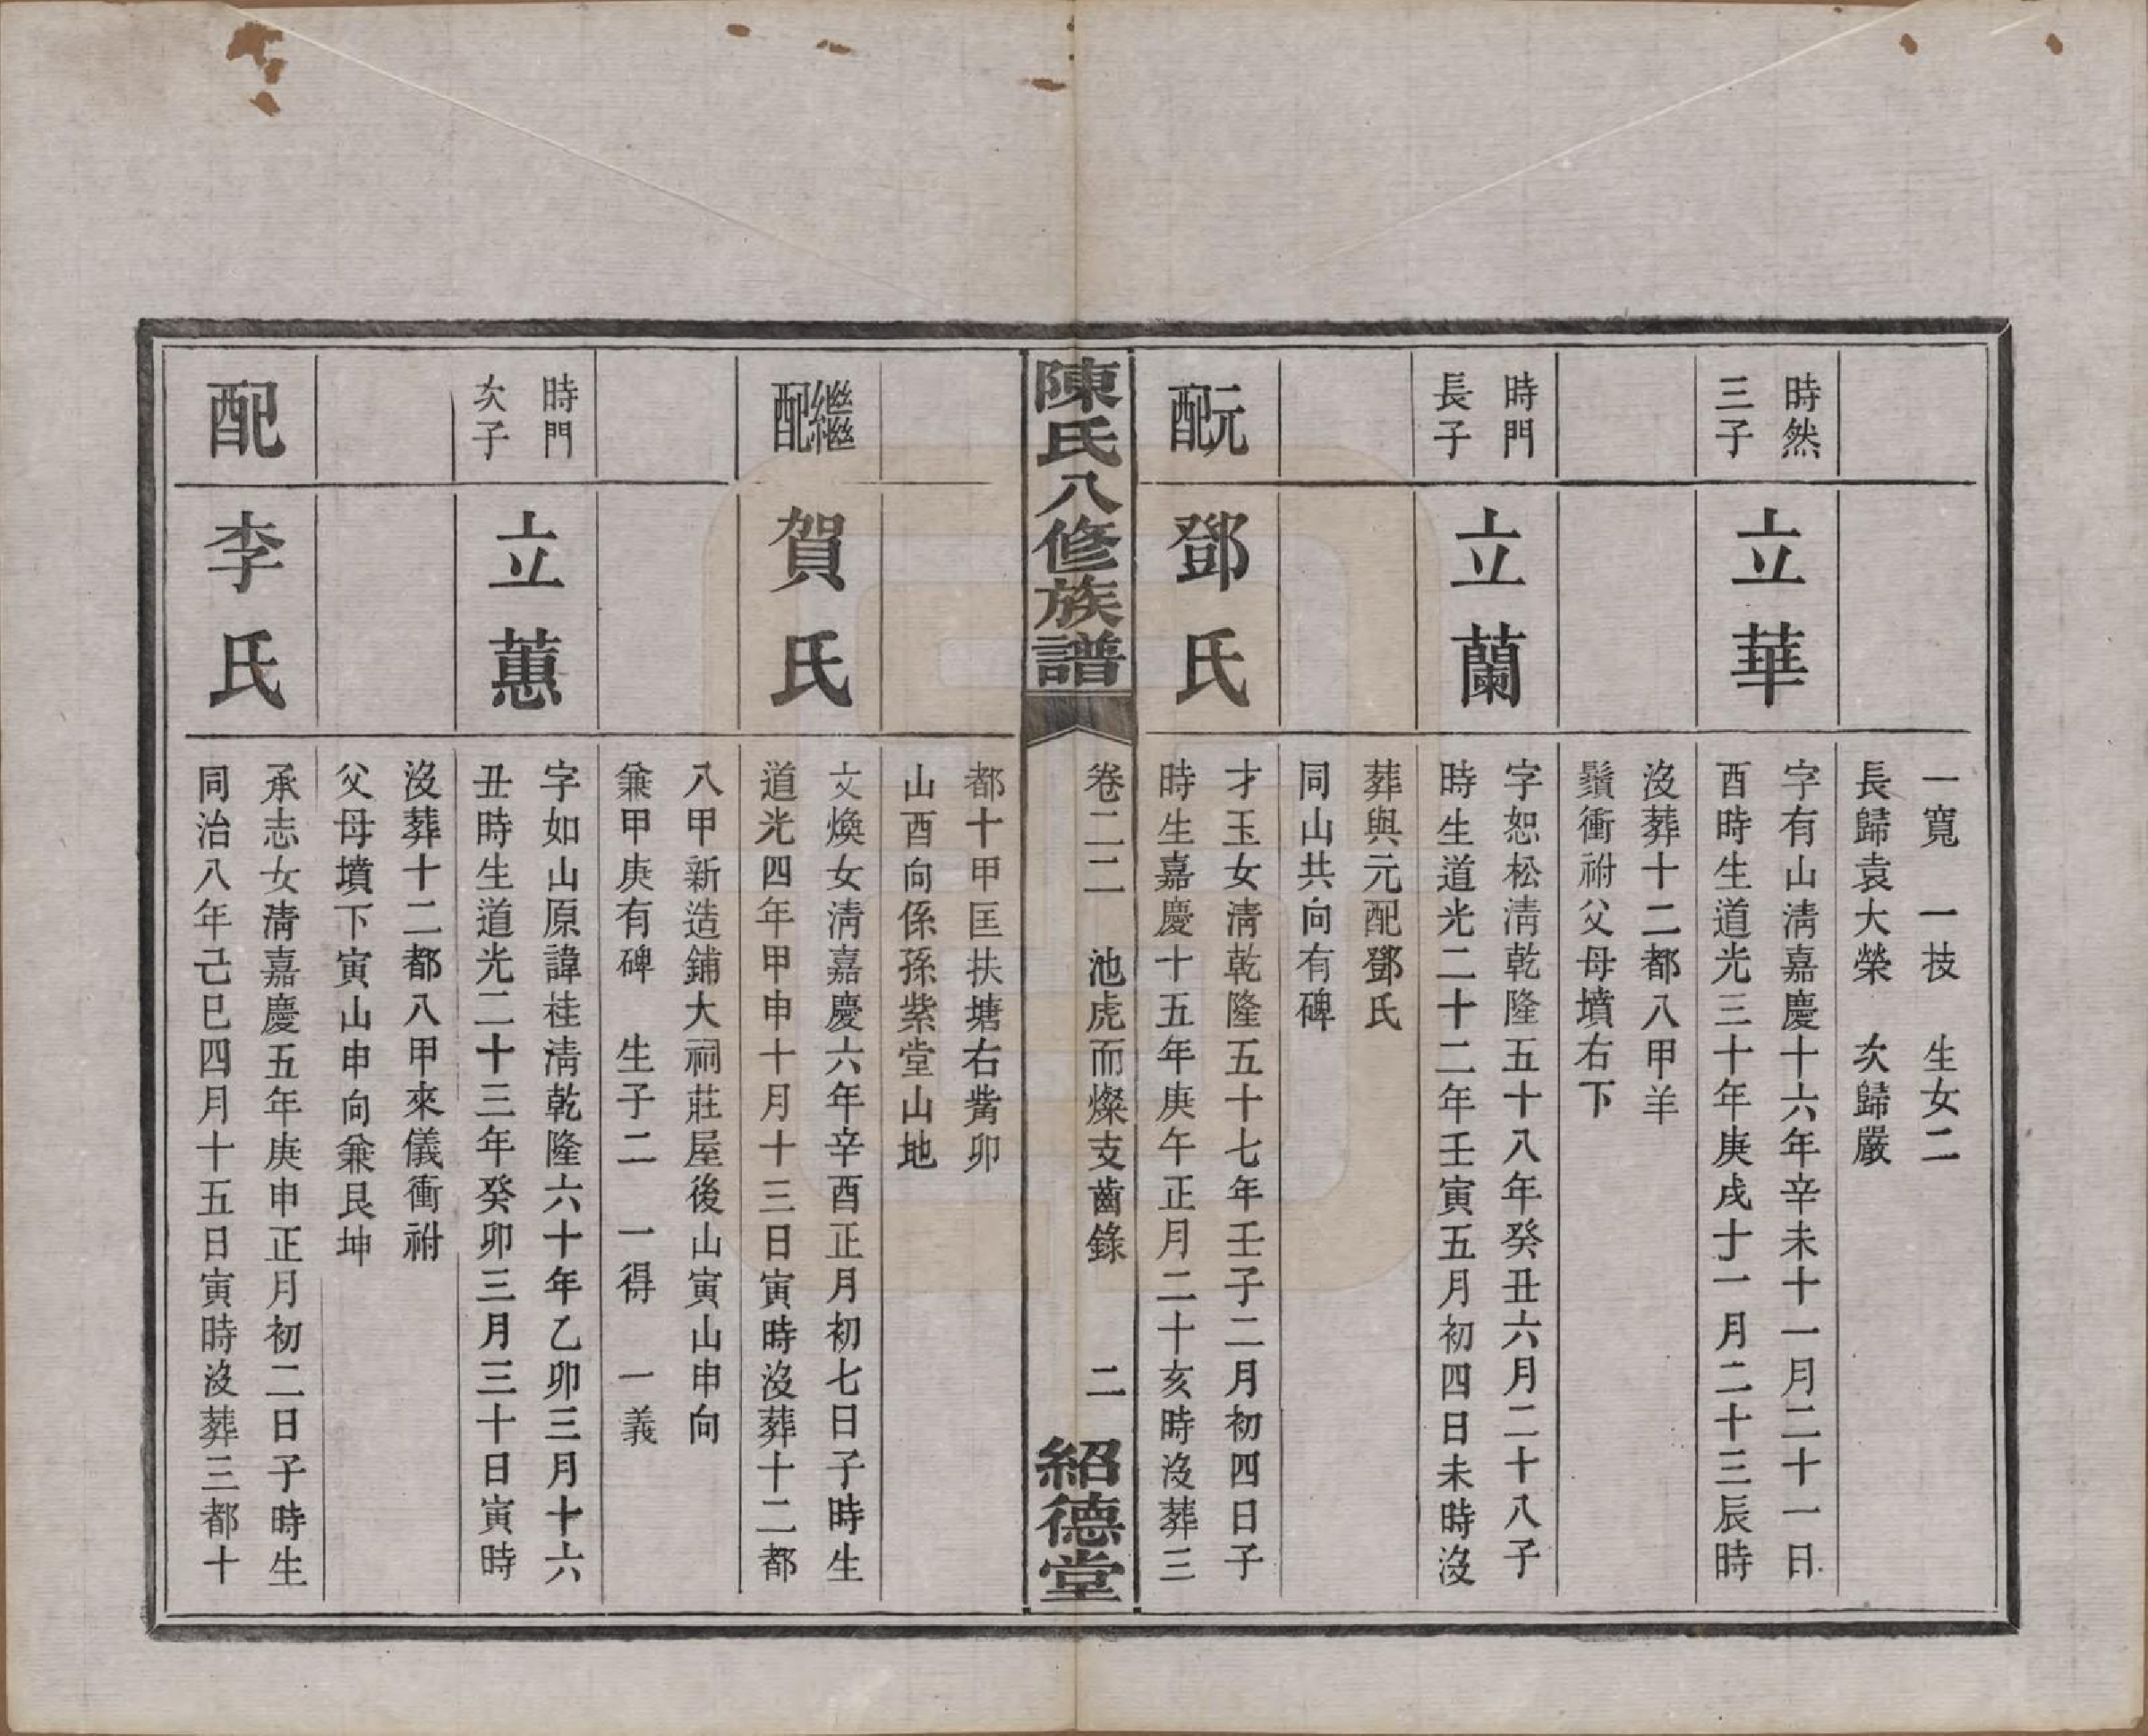 一寬　一技　生女二
長歸袁大榮　次歸嚴
時然
三子
立華
字有山清嘉慶十六年辛未十一月二十一日
酉時生道光三十年庚戌十一月二十三辰時
沒葬十二都八甲羊
鬚衝祔父母墳右下
時門
長子
立蘭
字恕松清乾隆五十八年癸丑六月二十八子
時生道光二十二年壬寅五月初四日未時沒
葬與元配鄧氏
同山共向有碑
元配
鄧氏
才玉女清乾隆五十七年壬子二月初四日子
時生嘉慶十五年庚午正月二十亥時沒葬三
陳氏八修族譜
卷二二　池虎而燦支齒錄　二
紹德堂
都十甲匡扶塘右觜卯
山酉向係孫紫堂山地
繼配
賀氏
文煥女清嘉慶六年辛酉正月初七日子時生
道光四年甲申十月十三日寅時沒葬十二都
八甲新造鋪大祠莊屋後山寅山申向
兼甲庚有碑　生子二　一得　一義
時門
次子
立蕙
字如山原諱桂清乾隆六十年乙卯三月十六
丑時生道光二十三年癸卯三月三十日寅時
沒葬十二都八甲來儀衝祔
父母墳下寅山申向兼艮坤
配
李氏
承志女清嘉慶五年庚申正月初二日子時生
同治八年己巳四月十五日寅時沒葬三都十